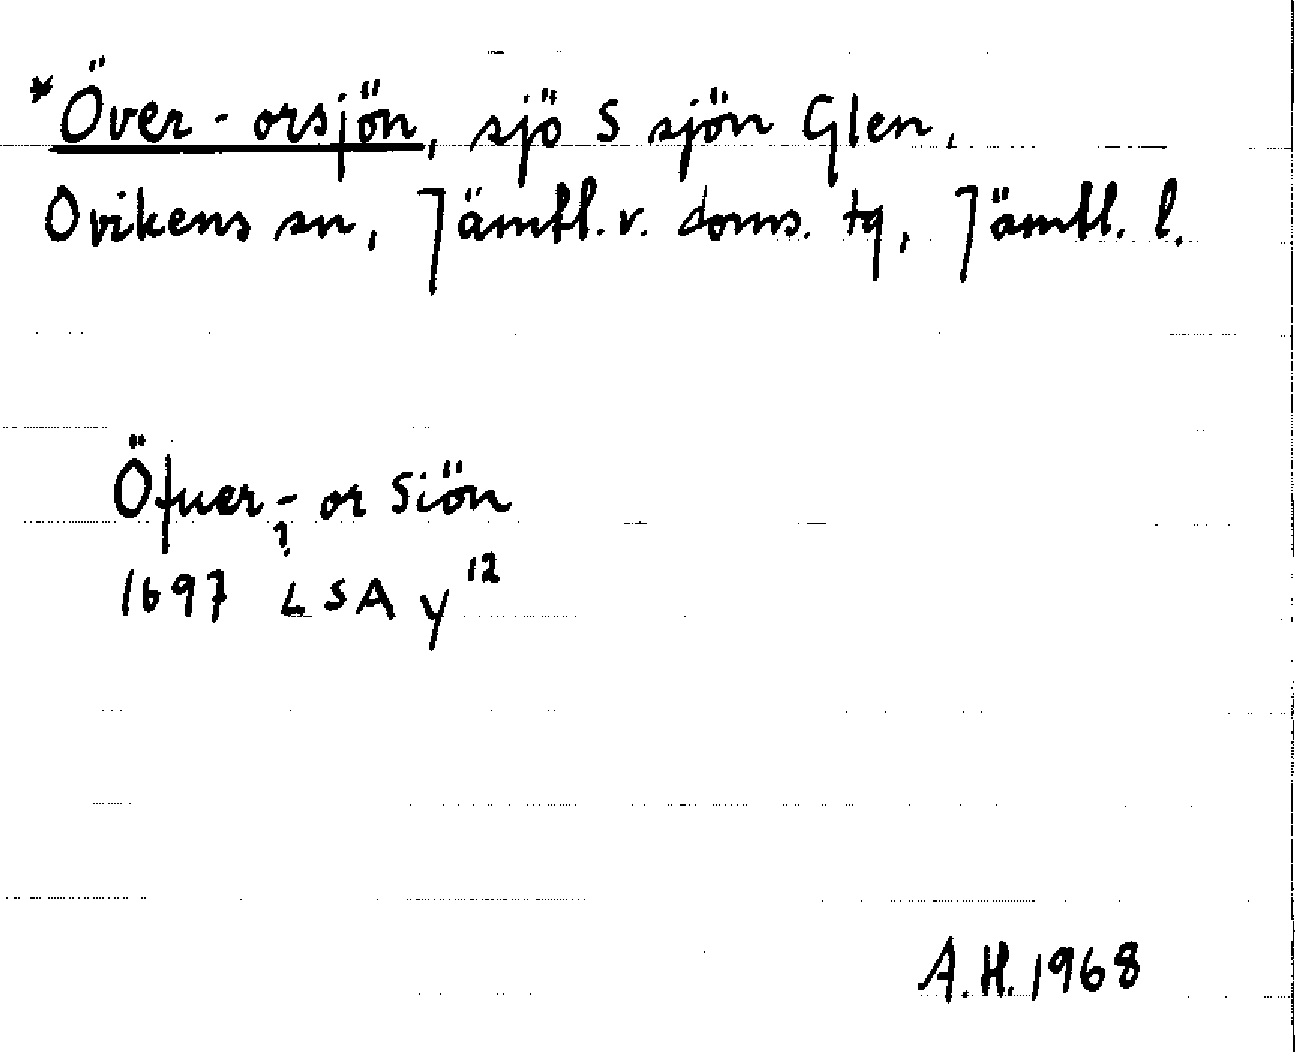 *Över-orsjön, sjö S sjön Glen,
Ovikens sn, Jämtl. v. doms. tg, Jämtl. l.
Öfuer-or Siön
?
1697 LSA y12
A.H. 1968